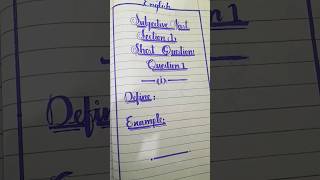 English
Subjective Part
Section 1
Short Questions
Question 1
(i)
Define:
Example: